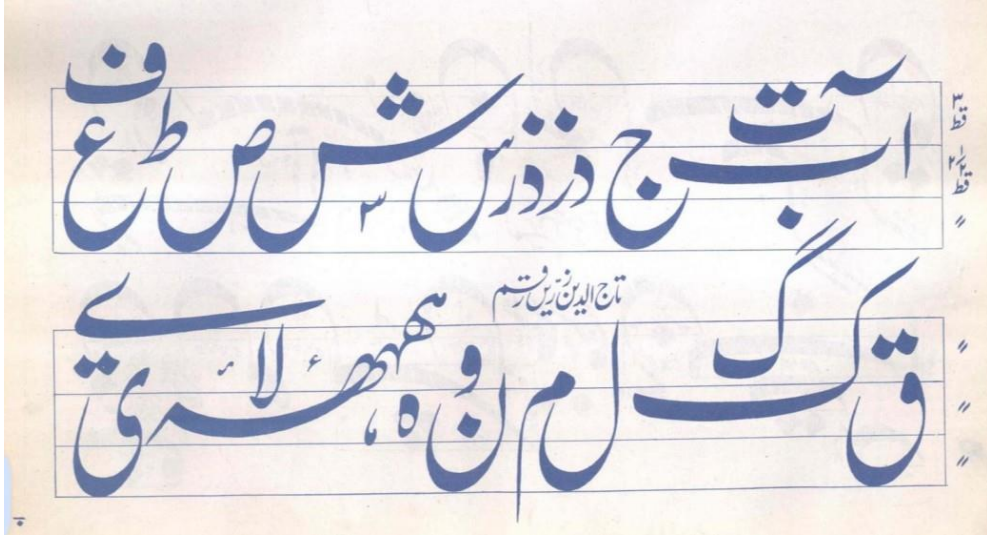 ا آ ب ت ج د ذ ر ذ ر س ش س ص ط ع ف
۳ قط
۲ ۱/۲ قط
〃
تاج الدین زریں رقم
ق ک گ ل م ن و ہ ء لا ی ے
〃
〃
〃